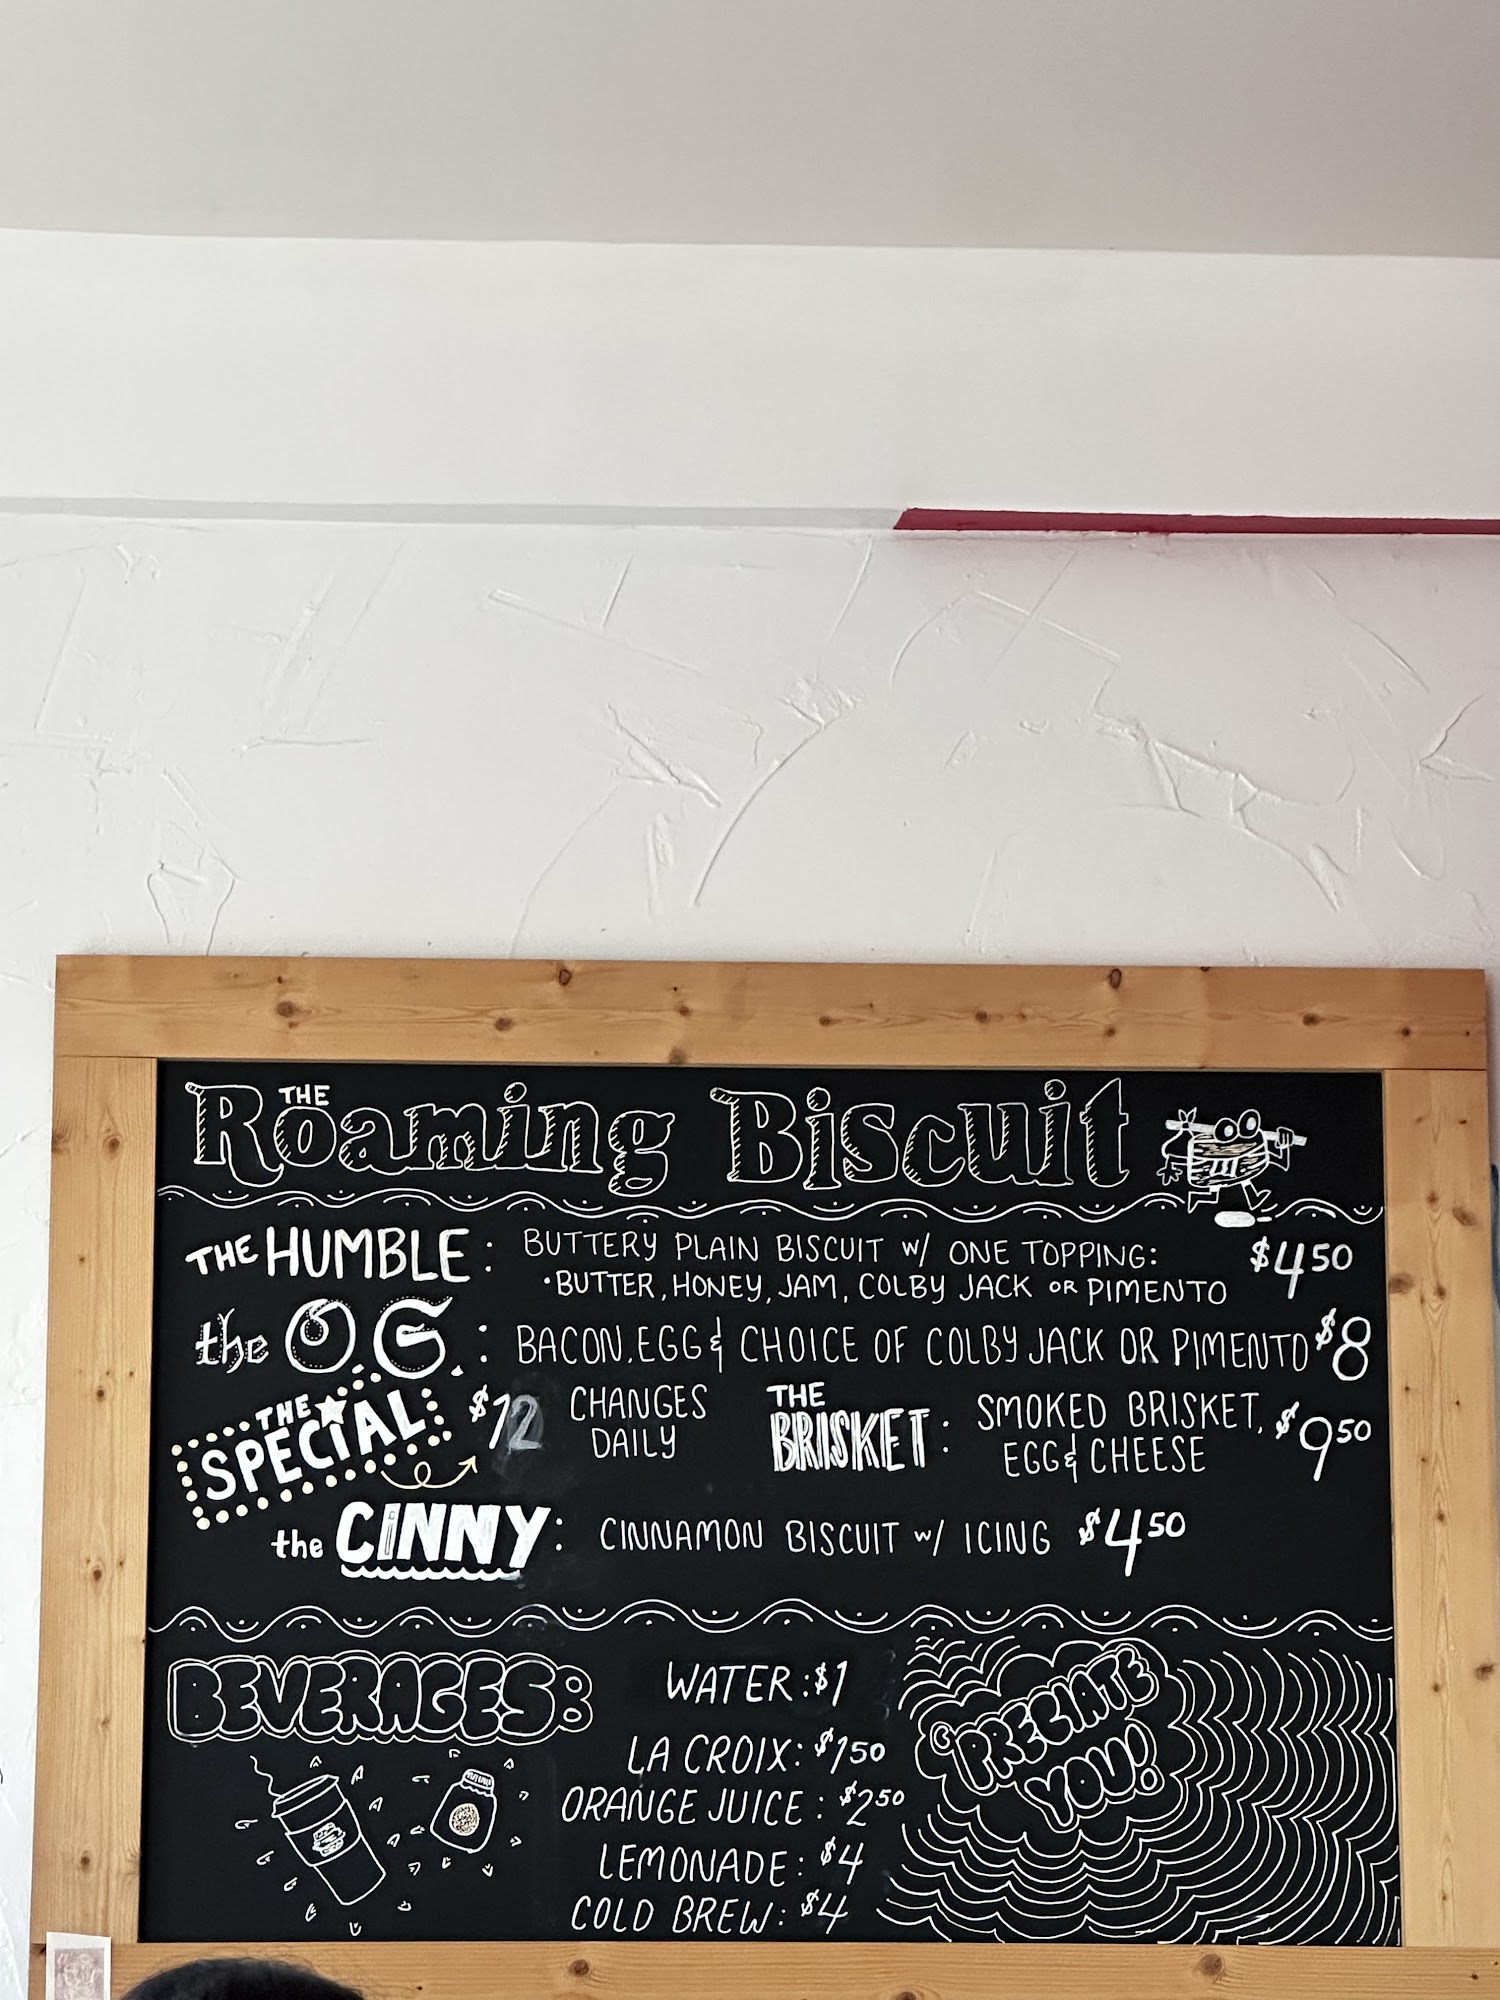 THE
Roaming Biscuit
THE HUMBLE: BUTTERY PLAIN BISCUIT W/ ONE TOPPING: $4.50
•BUTTER, HONEY, JAM, COLBY JACK OR PIMENTO
the O.G.: BACON, EGG & CHOICE OF COLBY JACK OR PIMENTO $8
THE SPECIAL $12 CHANGES DAILY
THE BRISKET: SMOKED BRISKET, EGG & CHEESE $9.50
the CINNY: CINNAMON BISCUIT W/ ICING $4.50
BEVERAGES:
WATER: $1
LA CROIX: $1.50
ORANGE JUICE: $2.50
LEMONADE: $4
COLD BREW: $4
'PRECIATE
YOU!